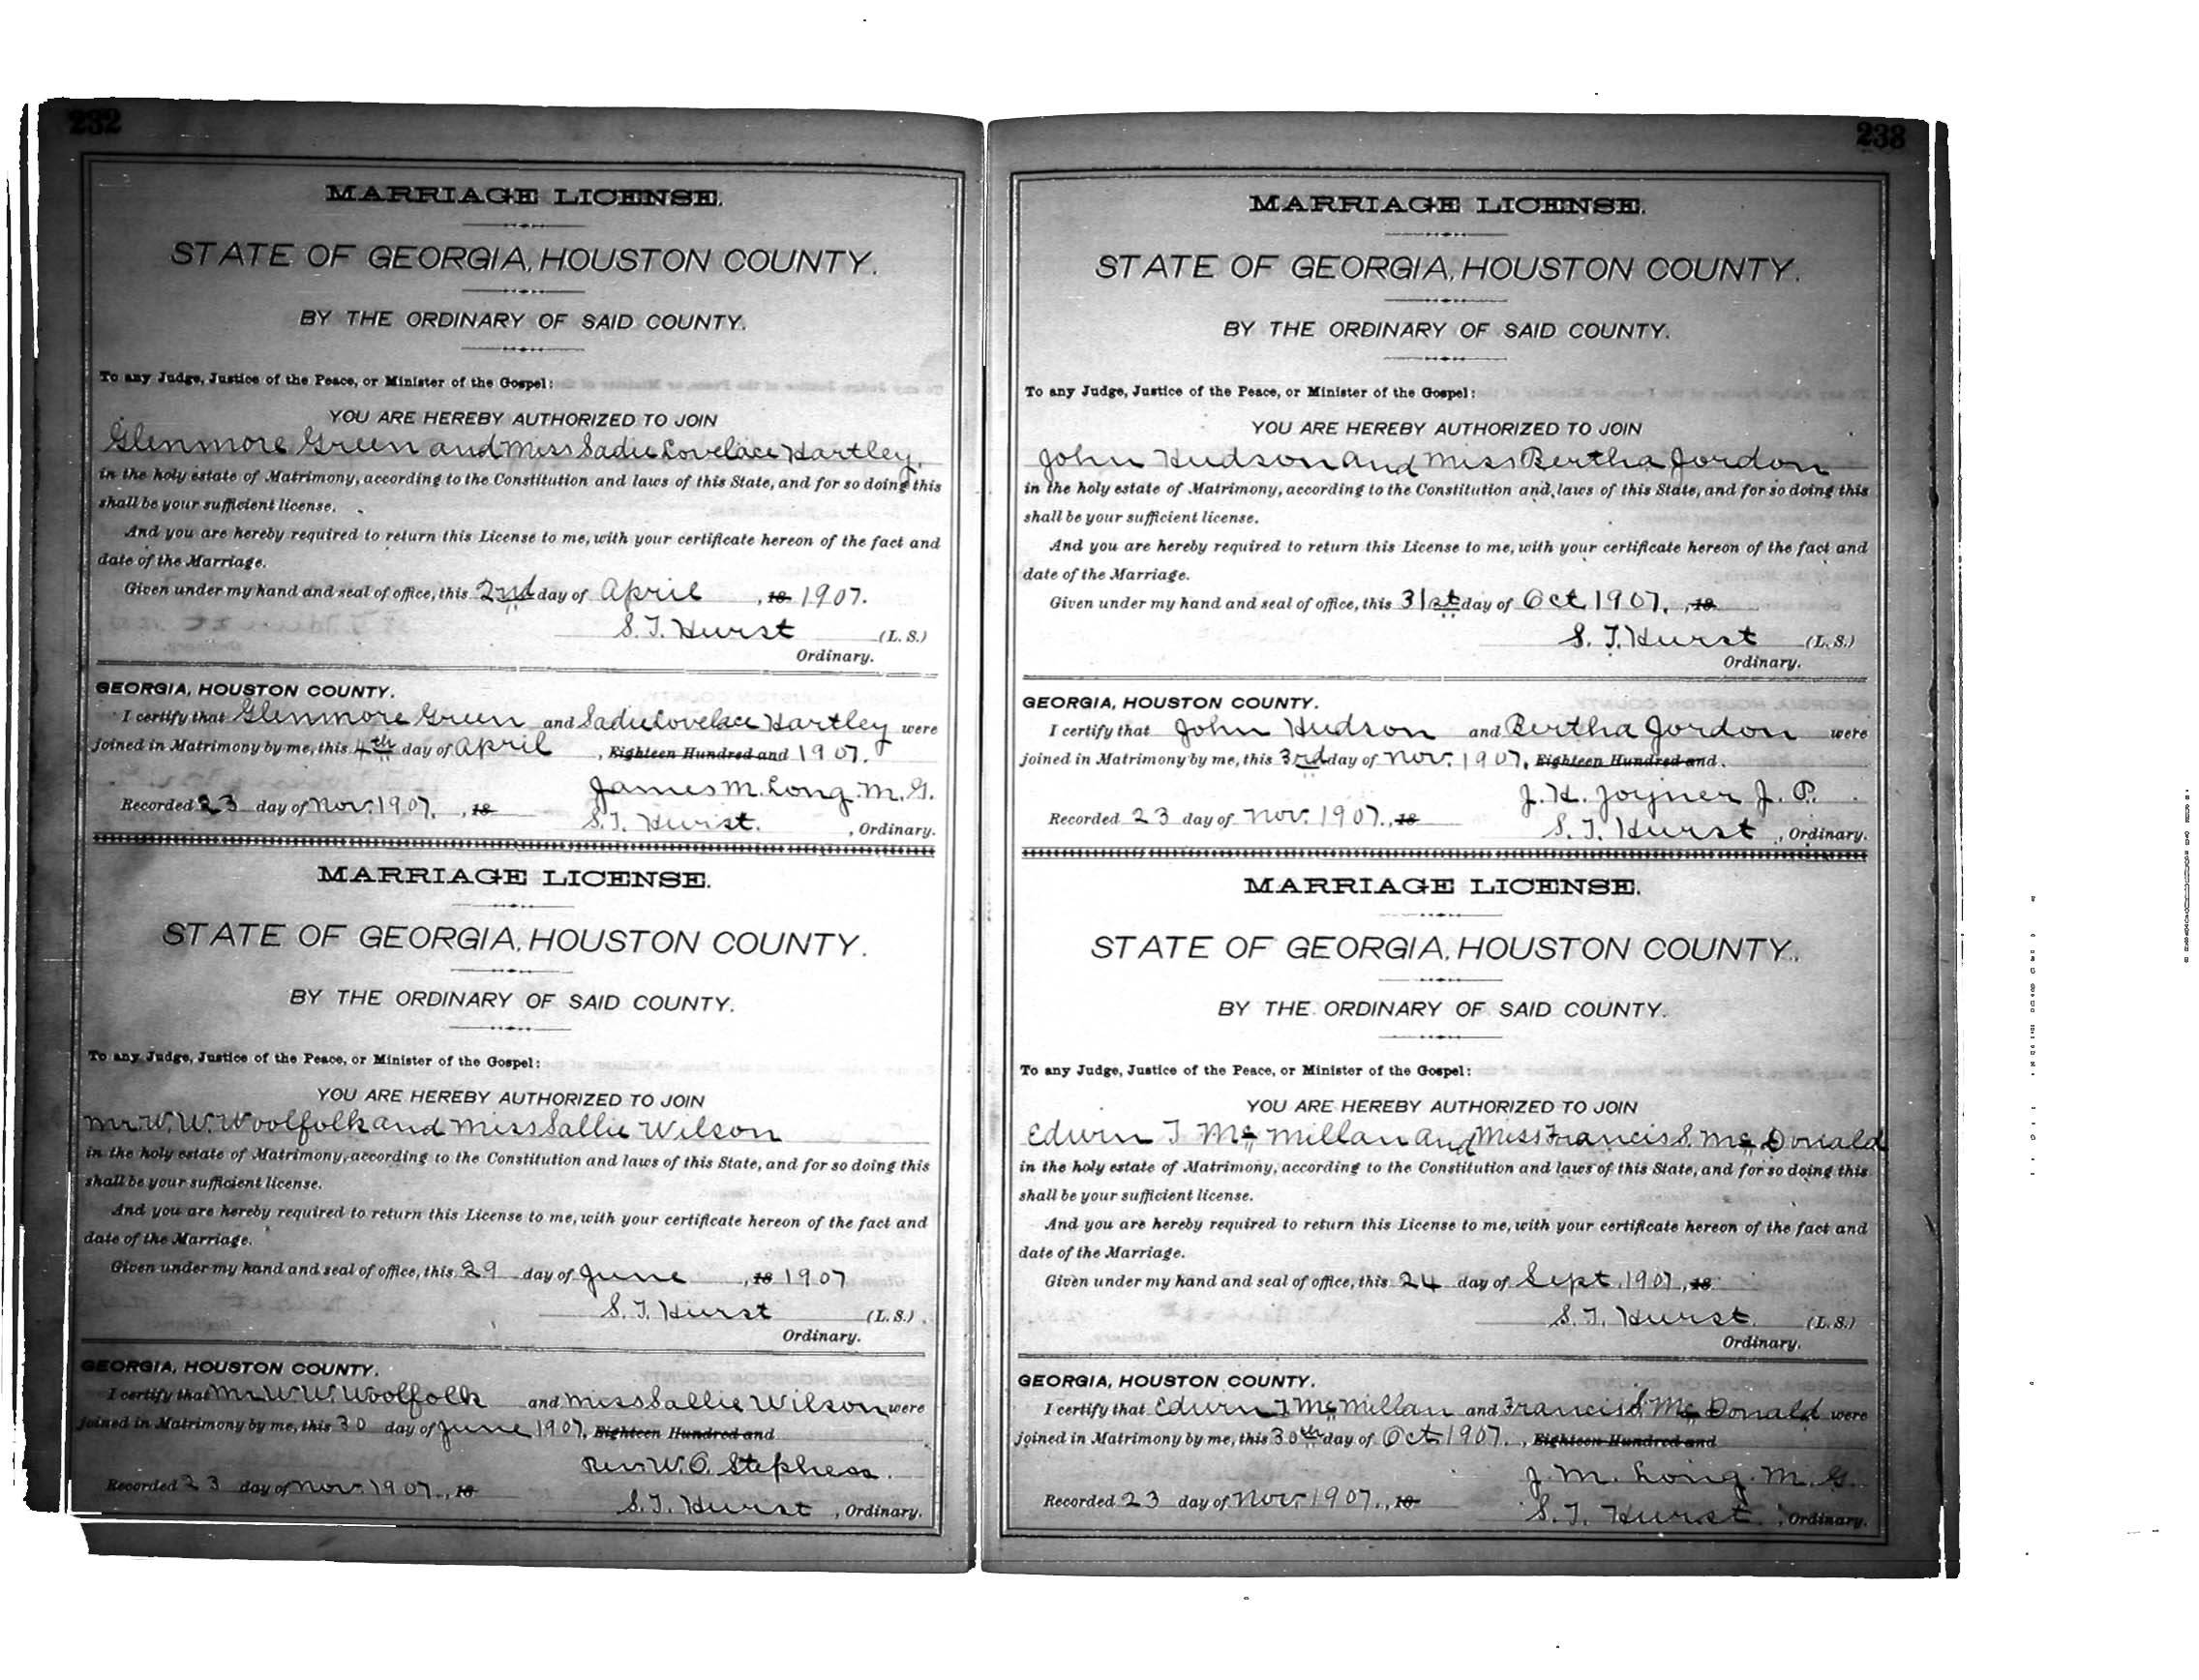 232
MARRIAGE LICENSE.
STATE OF GEORGIA, HOUSTON COUNTY.
BY THE ORDINARY OF SAID COUNTY.
To any Judge, Justice of the Peace, or Minister of the Gospel:
YOU ARE HEREBY AUTHORIZED TO JOIN
Glenmore Green and Miss Sadie Lovelace Hartley.
in the holy estate of Matrimony, according to the Constitution and laws of this State, and for so doing this
shall be your sufficient license.
And you are hereby required to return this License to me, with your certificate hereon of the fact and
date of the Marriage.
Given under my hand and seal of office, this 2nd day of April , 18 1907.
S. T. Hurst (L. S.)
Ordinary.
GEORGIA, HOUSTON COUNTY.
I certify that Glenmore Green and Sadie Lovelace Hartley were
joined in Matrimony by me, this 4th day of April , Eighteen Hundred and 1907.
James M. Long. M. G.
Recorded 23 day of Nov. 1907. , 18
S. T. Hurst. , Ordinary.
MARRIAGE LICENSE.
STATE OF GEORGIA, HOUSTON COUNTY.
BY THE ORDINARY OF SAID COUNTY.
To any Judge, Justice of the Peace, or Minister of the Gospel:
YOU ARE HEREBY AUTHORIZED TO JOIN
Mr. W. W. Woolfolk and Miss Sallie Wilson
in the holy estate of Matrimony, according to the Constitution and laws of this State, and for so doing this
shall be your sufficient license.
And you are hereby required to return this License to me, with your certificate hereon of the fact and
date of the Marriage.
Given under my hand and seal of office, this 29 day of June , 18 1907
S. T. Hurst (L. S.)
Ordinary.
GEORGIA, HOUSTON COUNTY.
I certify that Mr W. W. Woolfolk and Miss Sallie Wilson were
joined in Matrimony by me, this 30 day of June 1907, Eighteen Hundred and
Rev. W. O. Stephess.
Recorded 23 day of Nov. 1907., 18
S. T. Hurst , Ordinary.
238
MARRIAGE LICENSE.
STATE OF GEORGIA, HOUSTON COUNTY.
BY THE ORDINARY OF SAID COUNTY.
To any Judge, Justice of the Peace, or Minister of the Gospel:
YOU ARE HEREBY AUTHORIZED TO JOIN
John Hudson and Miss Bertha Jordon
in the holy estate of Matrimony, according to the Constitution and laws of this State, and for so doing this
shall be your sufficient license.
And you are hereby required to return this License to me, with your certificate hereon of the fact and
date of the Marriage.
Given under my hand and seal of office, this 31st day of Oct 1907. , 18
S. T. Hurst (L. S.)
Ordinary.
GEORGIA, HOUSTON COUNTY.
I certify that John Hudson and Bertha Jordon were
joined in Matrimony by me, this 3rd day of Nov. 1907, Eighteen Hundred and.
J. H. Joyner J. P.
Recorded 23 day of Nov. 1907., 18
S. T. Hurst , Ordinary.
MARRIAGE LICENSE.
STATE OF GEORGIA, HOUSTON COUNTY.
BY THE ORDINARY OF SAID COUNTY.
To any Judge, Justice of the Peace, or Minister of the Gospel:
YOU ARE HEREBY AUTHORIZED TO JOIN
Edwin T Mc Millan and Miss Francis S. Mc Donald
in the holy estate of Matrimony, according to the Constitution and laws of this State, and for so doing this
shall be your sufficient license.
And you are hereby required to return this License to me, with your certificate hereon of the fact and
date of the Marriage.
Given under my hand and seal of office, this 24 day of Sept. 1907 , 18
S. T. Hurst. (L. S.)
Ordinary.
GEORGIA, HOUSTON COUNTY.
I certify that Edwin T Mc Millan and Francis S. Mc Donald were
joined in Matrimony by me, this 30th day of Oct. 1907. , Eighteen Hundred and
J. M. Long. M. G.
Recorded 23 day of Nov. 1907., 18
S. T. Hurst. , Ordinary.